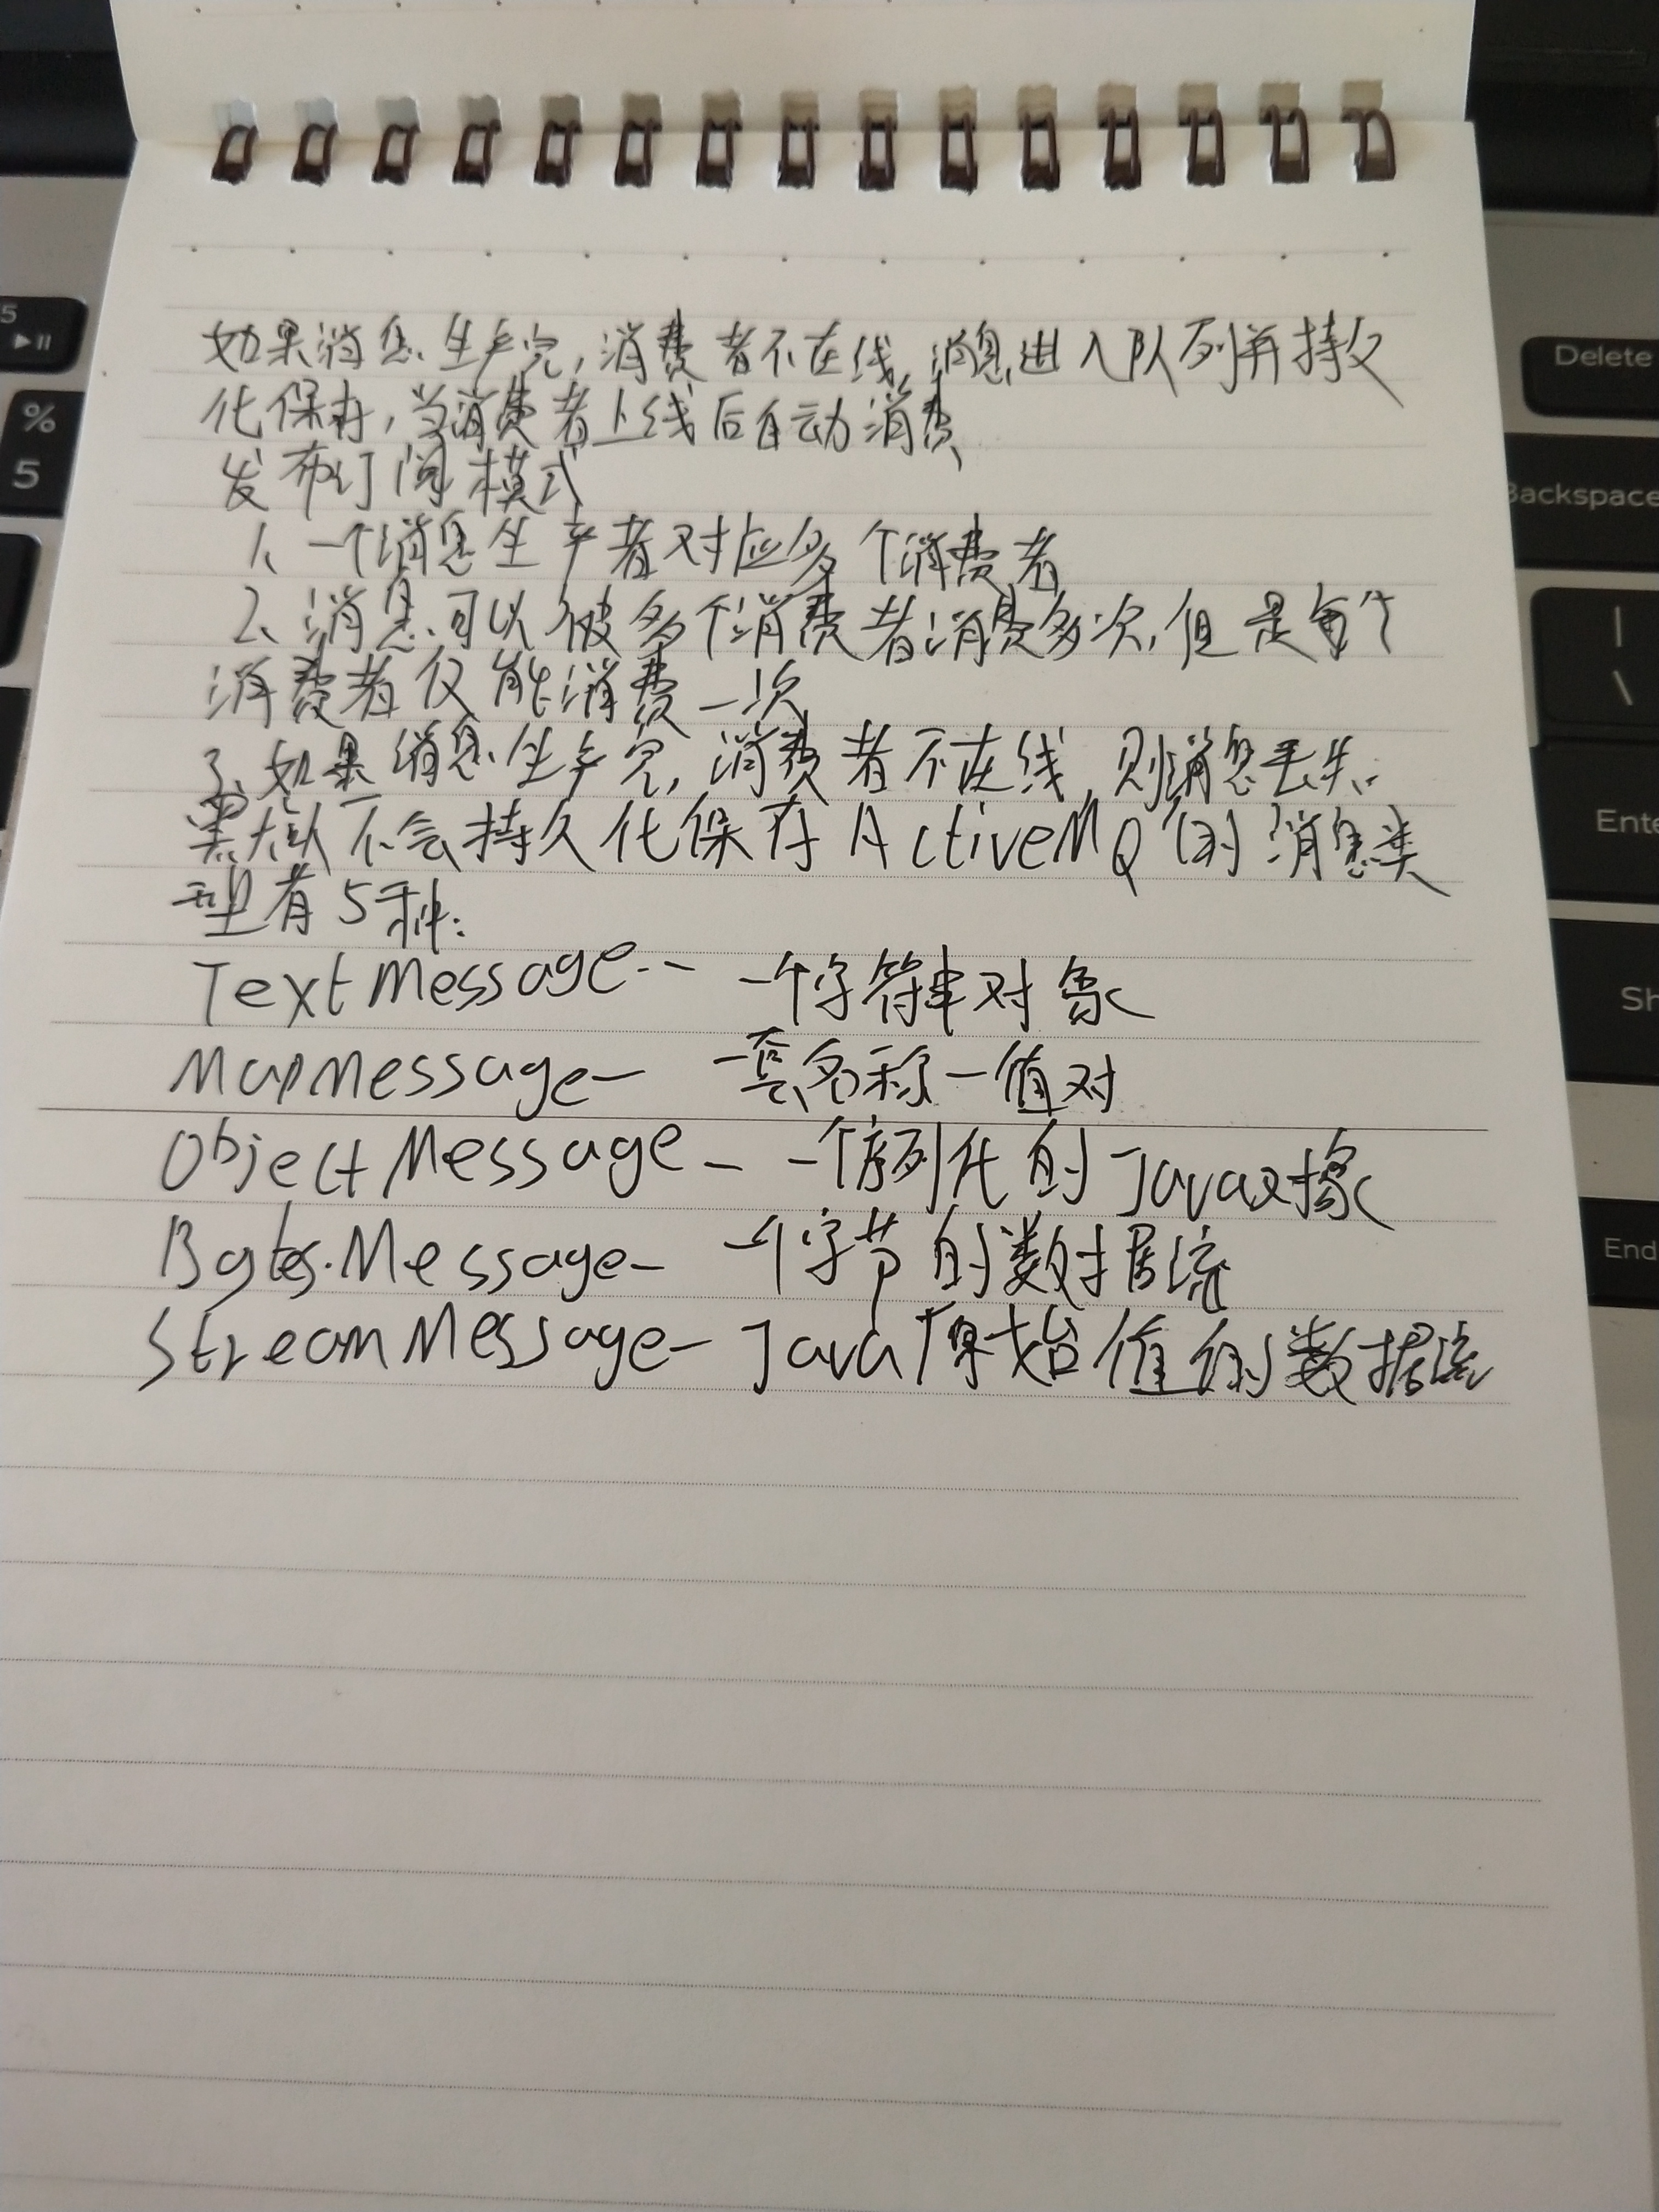 如果消息生产完,消费者不在线,消息进入队列并持久
化保存,当消费者上线后自动消费
发布订阅模式
1、一个消息生产者对应多个消费者
2、消息可以被多个消费者消费多次,但是每个
消费者仅能消费一次
3、如果消息生产完,消费者不在线,则消息丢失.
默认不会持久化保存ActiveMQ的消息类
型有5种:
TextMessage-- 一个字符串对象
MapMessage- 一套名称-值对
ObjectMessage- 一个序列化的Java对象
BytesMessage- 一个字节的数据流
StreamMessage- Java原始值的数据流
5
%
5
Delete
Backspace
|
\
Ente
Sh
End